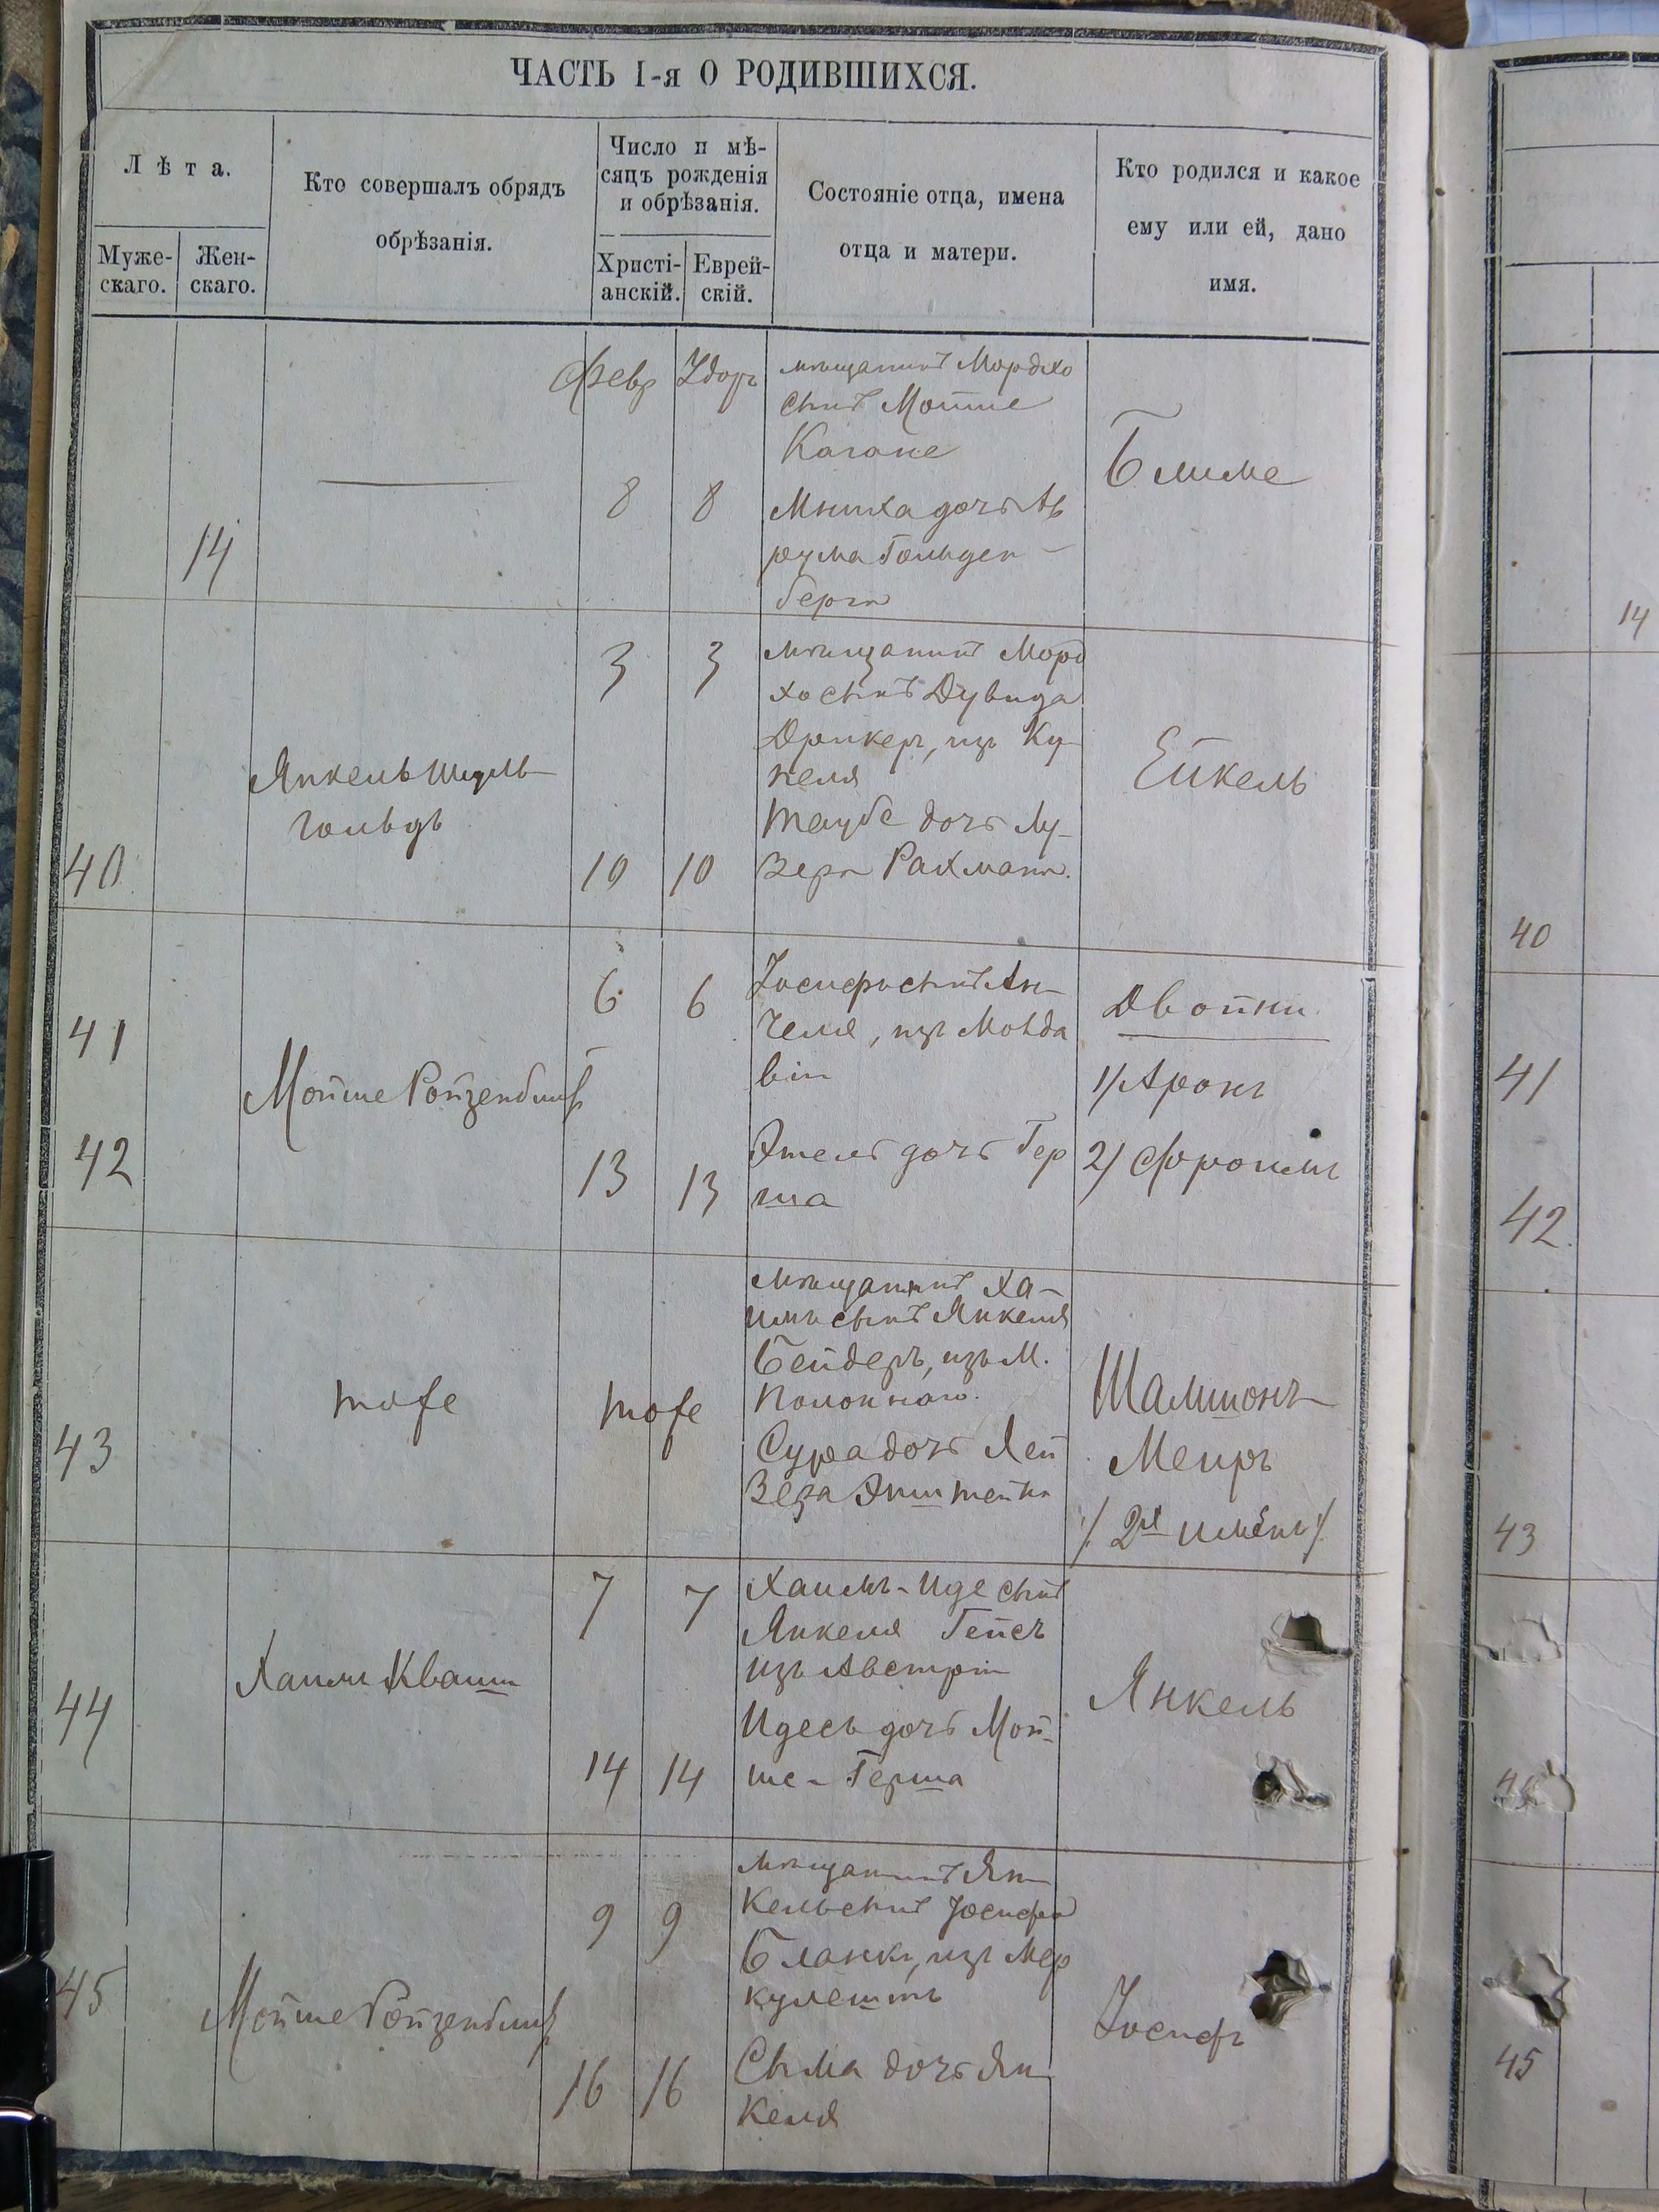 ЧАСТЬ I-я О РОДИВШИХСЯ.
Лѣта.
Муже-
скаго.
Жен-
скаго.
Кто совершалъ обрядъ
обрѣзанія.
Число и мѣ-
сяцъ рожденія
и обрѣзанія.
Христі-
анскій.
Еврей-
скій.
Состояніе отца, имена
отца и матери.
Кто родился и какое
ему или ей, дано
имя.
14
Февр
8
8
мѣщанинъ Мордхо
сынъ Мотше
Кагане
дочь Ав
рума Гольден-
берга
Блиме
40
Янкель Шидль-
гольдъ
3
3
10
10
мѣщанинъ Морд
хо сынъ Дувида
Дрикеръ, изъ Ку
пеля
Таубе дочь Лу-
зера Рахмана.
Ейкель
41
42
Мойше Ройзенблитъ
6
6
13
13
Іосифъ сынъ Ан-
челя, изъ Молда
віи
Этель дочь Гер
ша
Двойни
1/ Аронъ
2/ Фроимъ
43
тоже
тоже
мѣщанинъ Ха-
имъ сынъ Янкеля
Бейдеръ, изъ М.
Полоннаго.
Сура дочь Лей
зера Эпштейна
Шалмонъ
Меиръ
/: 2хъ имёнъ :/
44
Хаимъ Квашъ
7
7
14
14
Хаимъ-Иде сынъ
Янкеля Гепсъ
изъ Австріи
Идесъ дочь Мой-
ше-Герша
Янкель
45
Мойше Ройзенблитъ
9
9
16
16
мѣщанинъ Ян-
кель сынъ Іосифа
Бланкъ, изъ Мер
кулештъ
Сыма дочь Ян
келя
Іосифъ
14
40
41
42.
43
44
45